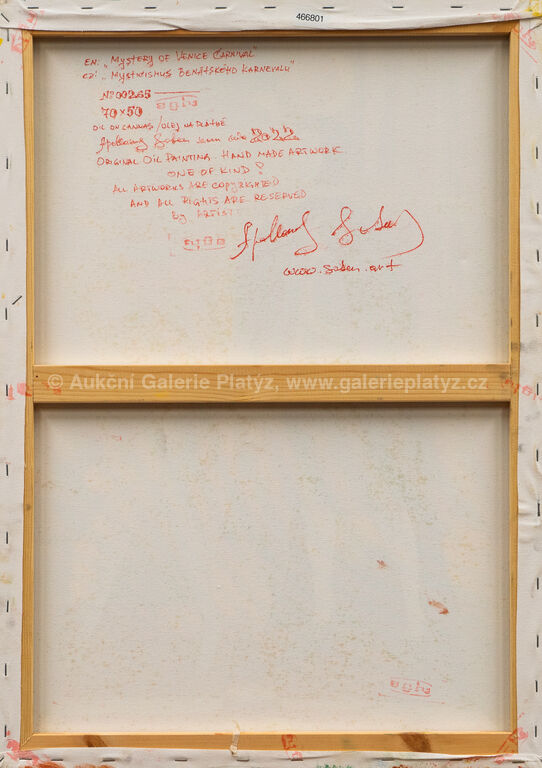 466801
EN: „MYSTERY OF VENICE CARNIVAL"
CZ: „MYSTICISMUS BENÁTSKÉHO KARNEVALU"
Nº 00265
70×50
OIL ON CANVAS / OLEJ NA PLÁTNĚ
2022
ORIGINAL OIL PAINTING. HAND MADE ARTWORK
ONE OF KIND!
ALL ARTWORKS ARE COPYRIGHTED
AND ALL RIGHTS ARE RESERVED
By ARTIST!
www.saben.art
© Aukční Galerie Platýz, www.galerieplatyz.cz